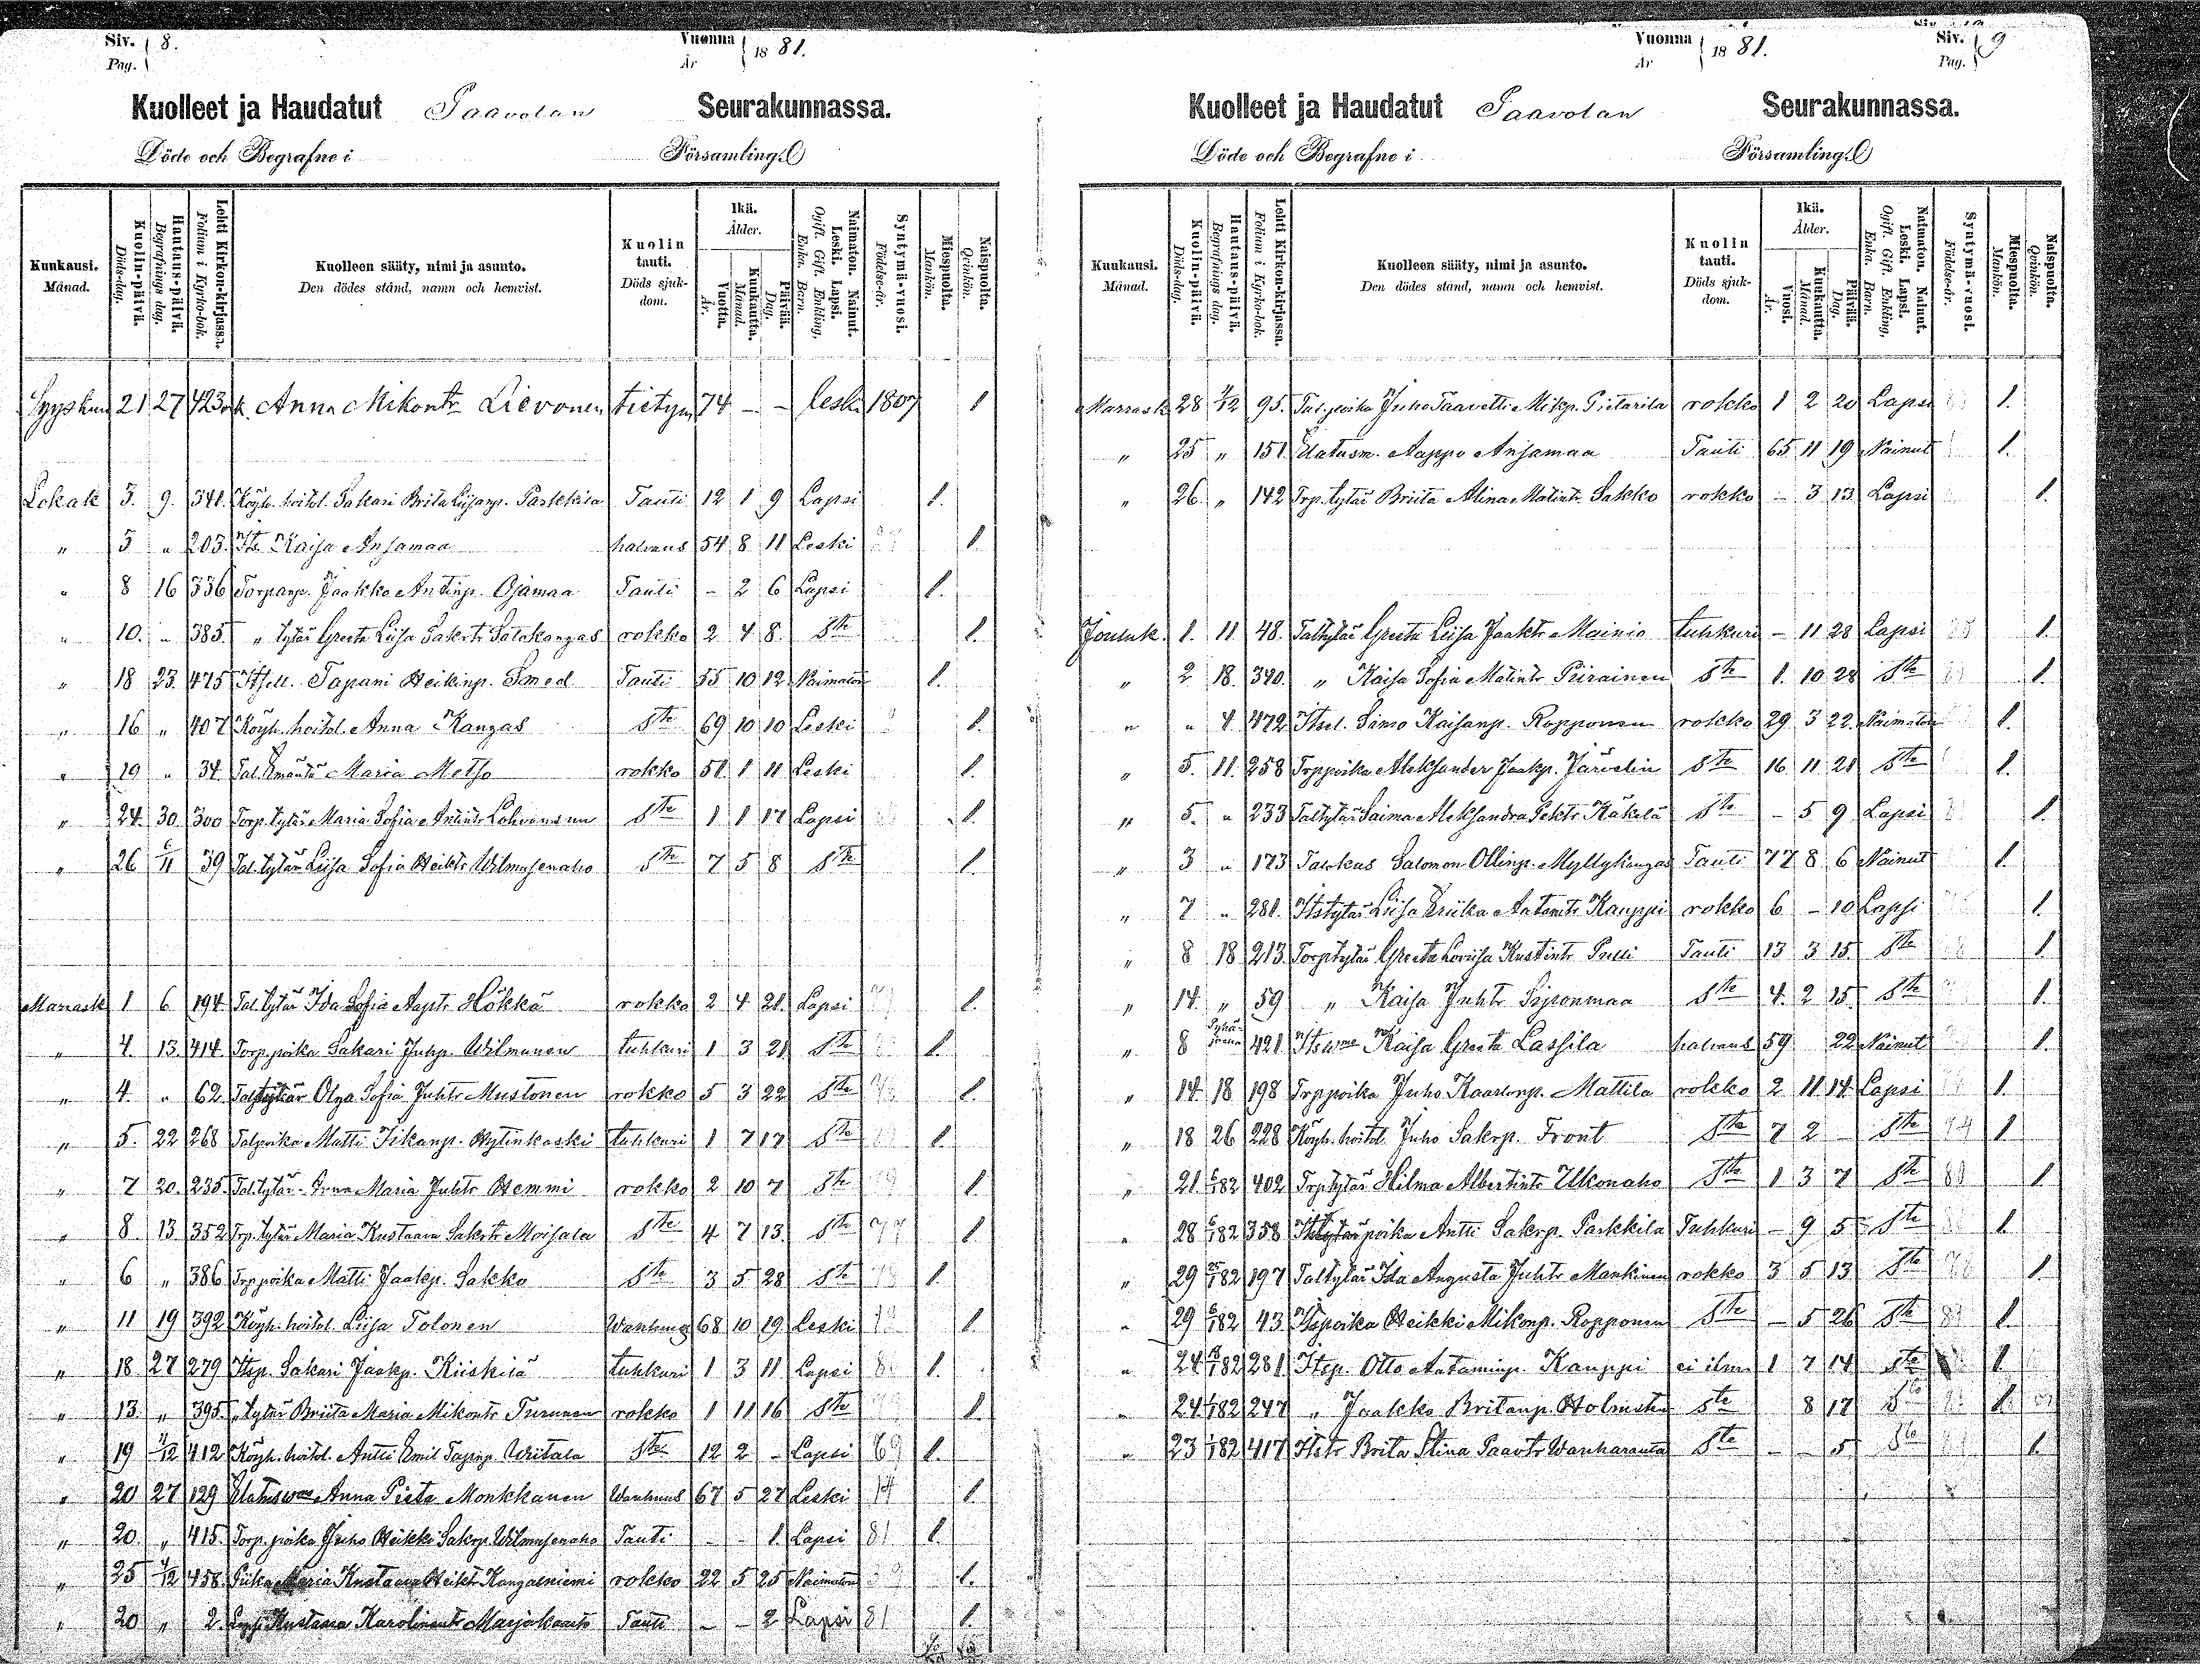 Siv. 8.
Pag.
Vuonna 1881.
År
Kuolleet ja Haudatut Paavolan Seurakunnassa.
Döde och Begrafne i Församling.
Kuukausi. Månad.
Kuolin-päivä. Döds-dag.
Hautaus-päivä. Begrafnings dag.
Lehti Kirkon-kirjassa. Folium i Kyrko-bok.
Kuolleen sääty, nimi ja asunto. Den dödes stånd, namn och hemvist.
Kuolin tauti. Döds sjuk-dom.
Ikä. Ålder.
Vuotta. År.
Kuukautta. Månad.
Päivää. Dag.
Naimaton. Nainut. Leski. Lapsi. Ogift. Gift. Enkling, Enka. Barn.
Syntymä-vuosi. Födelse-år.
Miespuolta. Mankön.
Naispuolta. Qvinkön.
Syyskuu 21 27 423 Anna Mikontr Lievonen 74 - - leski 1807 1
Lokak 3. 9. 341. Köyh. hoitol. Sakari Brita Liisanp. Parkkila Tauti 12 1 9 Lapsi 1.
" 5 " 203. Its Kaisa Anjamaa halvaus 54 8 11 Leski 1.
" 8 16 336 Torparip. Jaakko Antinp. Ojamaa Tauti - 2 6 Lapsi 1.
" 10. " 385. " tytär Greta Liisa Sakrtr Salokangas rokko 2 4 8. Ste 1.
" 18 23. 475 Itsell. Tapani Heikinp. Smed Tauti 55 10 12 Naimaton 1.
" 16 " 407 Köyh. hoitol. Anna Kangas Ste 69 10 10 Leski 1.
" 19 " 34. Tal. Emäntä Maria Metso rokko 51. 1 11 Leski 1.
" 24. 30 300 Torp. tytär Maria Sofia Antintr Ste 1 1 17 Lapsi 1.
" 26 6/11 39 Tal. tytär Liisa Sofia Heiktr Wilmusenaho Ste 7 5 8 Ste 1.
Marrask 1 6 194. Tal. tytär Ida Sofia Aaptr Hökkä rokko 2 4 21. Lapsi 1.
" 4. 13. 414. Torp. poika Sakari Juhp. Wilmunen tuhkuri 1 3 21 Ste 1.
" 4. " 62. Taltytär Olga Sofia Juhtr Mustonen rokko 5 3 22 Ste 1.
" 5. 22 268 Talpoika Matti Iikanp. Hytinkoski tuhkuri 1 7 17 Ste 1.
" 7 20. 235. Tal. tytär Anna Maria Juhtr Hemmi rokko 2 10 7 Ste 1
" 8. 13 352 Trp. tytär Maria Kustaava Sakrtr Moisala Ste 4 7 13. Ste 77 1
" 6 " 386 Trp poika Matti Jaakp. Sakko Ste 3 5 28 Ste 1.
" 11 19 392 Köyh. hoitol. Liisa Tolonen Wanhuus 68 10 19 Leski 1.
" 18 27 279 Itsp. Sakari Jaakp. Kiiskilä tuhkuri 1 3 11 Lapsi 1.
" 13. " 395. " tytär Briita Maria Mikontr Turunen rokko 1 11 16 Ste 1.
" 19 4/12 412 Köyh. hoitol. Antti Emil Tapinp. Wiitala Ste 12 2 - Lapsi 69 1.
" 20 27 129 Anna Pieta Monkkanen Wanhuus 67 5 27 Leski 14 1.
" 20. " 415. Torp. poika Juho Heikki Sakrp. Wilmusenaho Tauti - - 1 Lapsi 81 1.
" 25 4/12 458. Piika Maria Kustaava Heiktr Kangasniemi rokko 22 5 25 Naimaton 1.
" 20 " 2. Kustaava Karolinantr Tauti - - 2 Lapsi 81 1.
Vuonna 1881.
År
Siv. 9
Pag.
Kuolleet ja Haudatut Paavolan Seurakunnassa.
Döde och Begrafne i Församling.
Kuukausi. Månad.
Kuolin-päivä. Döds-dag.
Hautaus-päivä. Begrafnings dag.
Lehti Kirkon-kirjassa. Folium i Kyrko-bok.
Kuolleen sääty, nimi ja asunto. Den dödes stånd, namn och hemvist.
Kuolin tauti. Döds sjuk-dom.
Ikä. Ålder.
Vuosi. År.
Kuukautta. Månad.
Päivää. Dag.
Naimaton. Nainut. Leski. Lapsi. Ogift. Gift. Enkling, Enka. Barn.
Syntymä-vuosi. Födelse-år.
Miespuolta. Mankön.
Naispuolta. Qvinkön.
Marrask 28 4/12 95. Tal. poika Juho Taavetti Mikp. Pietarila rokko 1 2 20 Lapsi 1.
" 25 " 151. Elatusm. Aappo Anjamaa Tauti 65 11 19 Nainut 1.
" 26 " 142 Trp. tytär Briita Alina Matintr Sakko rokko - 3 13. Lapsi 1.
Jouluk. 1. 11 48. Taltytär Greeta Liisa Jaaktr Mainio tuhkuri - 11 28 Lapsi 1.
" 2 18. 340. " Kaisa Sofia Matintr Piirainen Ste 1. 10 28 Ste 1.
" " 4 472 Itsel. Simo Kaisanp. Ropponen rokko 29 3 22. Naimaton 1.
" 5. 11. 258 Trppoika Aleksander Jaakp. Järvelin Ste 16 11 21 Ste 1.
" 5. " 233 Taltytär Saima Aleksandra Pektr Käkelä Ste - 5 9 Lapsi 1.
" 3 " 173 Talokas Salomon Ollinp. Myllykangas Tauti 77 8 6 Nainut 1.
" 7 " 281. Itstytär Liisa Eriika Aatamitr Kauppi rokko 6 - 10 Lapsi 1.
" 8 18 213. Torptytär Greeta Loviisa Kustintr Pulli Tauti 13 3 15. Ste 1.
" 14. " 59 " Kaisa Juhtr Siponmaa Ste 4. 2 15. Ste 1.
" 8 Pyhä-joena 421 Kaisa Greeta Lassila halvaus 59 22 Nainut 1.
" 14 18 198 Trppoika Juho Kaarlonp. Mattila rokko 2 11 14 Lapsi 1.
" 18 26 228 Köyh. hoitol. Juho Sakrp. Front Ste 7 2 - Ste 74 1
" 21. 6/182 402 Trptytär Hilma Albertintr Ulkonaho Ste 1 3 7 Ste 80 1
" 28 6/182 358 poika Antti Sakrp. Parkkila Tuhkuri - 9 5 Ste 1.
" 29 25/182 197 Taltytär Ida Augusta Juhtr Mankinen rokko 3 5 13 Ste 1.
" 29 6/182 43 Itspoika Heikki Mikonp. Ropponen Ste - 5 26 Ste 81 1.
" 24 18/182 281 Itsp. Otto Aataminp. Kauppi ei ilm. 1 7 14 Ste 1.
" 24 1/182 247 " Jaakko Britanp. Ste 8 17 Ste 1.
" 23 1/182 417 Itstr Brita Stina Paavtr Wanharanta Ste - - 5 Ste 1.